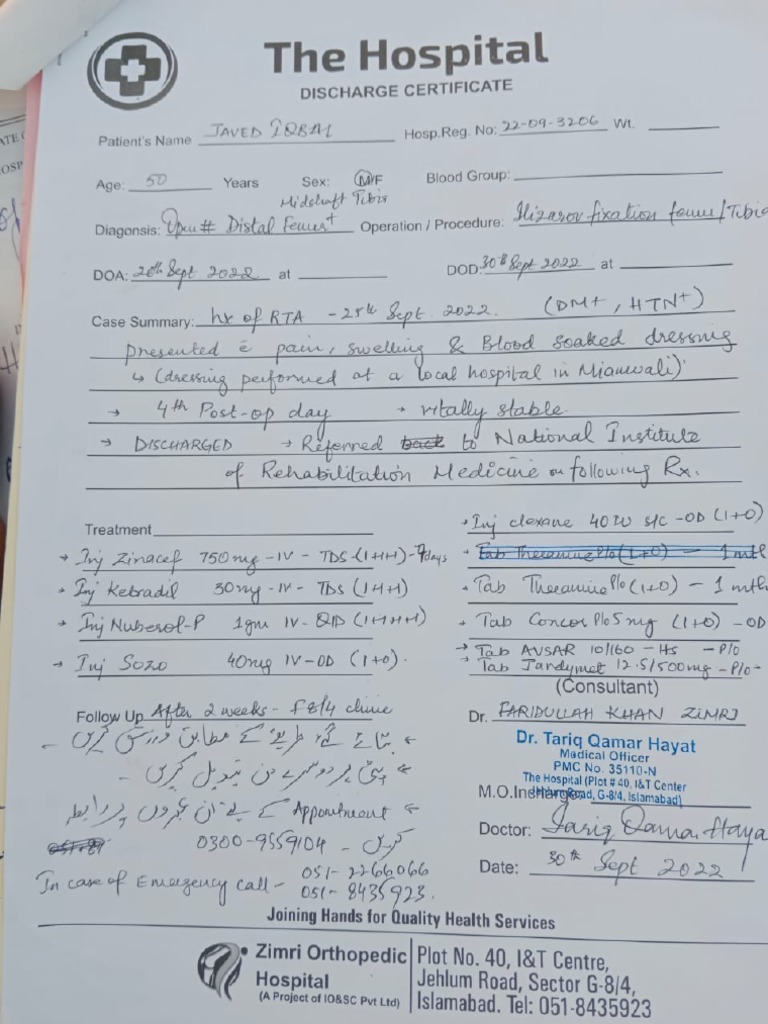 The Hospital
DISCHARGE CERTIFICATE
Patient's Name JAVED IQBAL Hosp.Reg. No: 22-09-3206 Wt.
Age: 50 Years Sex: M/F Blood Group:
Midshaft Tibia
Diagonsis: Open # Distal Femur+ Operation / Procedure: Ilizarov fixation femur/Tibia
DOA: 26th Sept 2022 at DOD: 30th Sept 2022 at
Case Summary: hx of RTA - 25th Sept. 2022. (DM+, HTN+)
presented c̄ pain, swelling & Blood soaked dressing
↳ (dressing performed at a local hospital in Mianwali)
→ 4th Post-op day → vitally stable
→ DISCHARGED → Referred to National Institute
of Rehabilitation Medicine on following Rx.
Treatment
→ Inj Zinacef 750mg - IV - TDS (1+1+1) - 7days
→ Inj Kebradil 30mg - IV - TDS (1+1+1)
→ Inj Nuberol-P 1gm IV - QID (1+1+1+1)
→ Inj Sozo 40mg IV - OD (1+0).
→ Inj clexane 40IU s/c - OD (1+0)
→ Tab Theramine P/o (1+0) - 1mth
→ Tab Theramine P/o (1+0) - 1 mth
→ Tab Concor P/o 5mg (1+0) - OD
→ Tab AVSAR 10/160 - HS - P/o
→ Tab Jandymet 12.5/500mg - P/o -
(Consultant)
Follow Up After 2 weeks - G 8/4 clinic
Dr. FARIDULLAH KHAN ZIMRI
← بتائے گئے طریقے کے مطابق ورزش کریں -
← پٹی ہر دوسرے دن تبدیل کریں -
← Appointment کے لیے ان نمبروں پر رابطہ
کریں - 0300-9559104
In case of Emergency call - 051-2266066
051-8435923.
Dr. Tariq Qamar Hayat
Medical Officer
PMC No. 35110-N
The Hospital (Plot # 40, I&T Center
Road, G-8/4, Islamabad)
M.O.Incharge
Doctor: Tariq Qamar Haya
Date: 30th Sept 2022
Joining Hands for Quality Health Services
Zimri Orthopedic
Hospital
(A Project of IO&SC Pvt Ltd)
Plot No. 40, I&T Centre,
Jehlum Road, Sector G-8/4,
Islamabad. Tel: 051-8435923